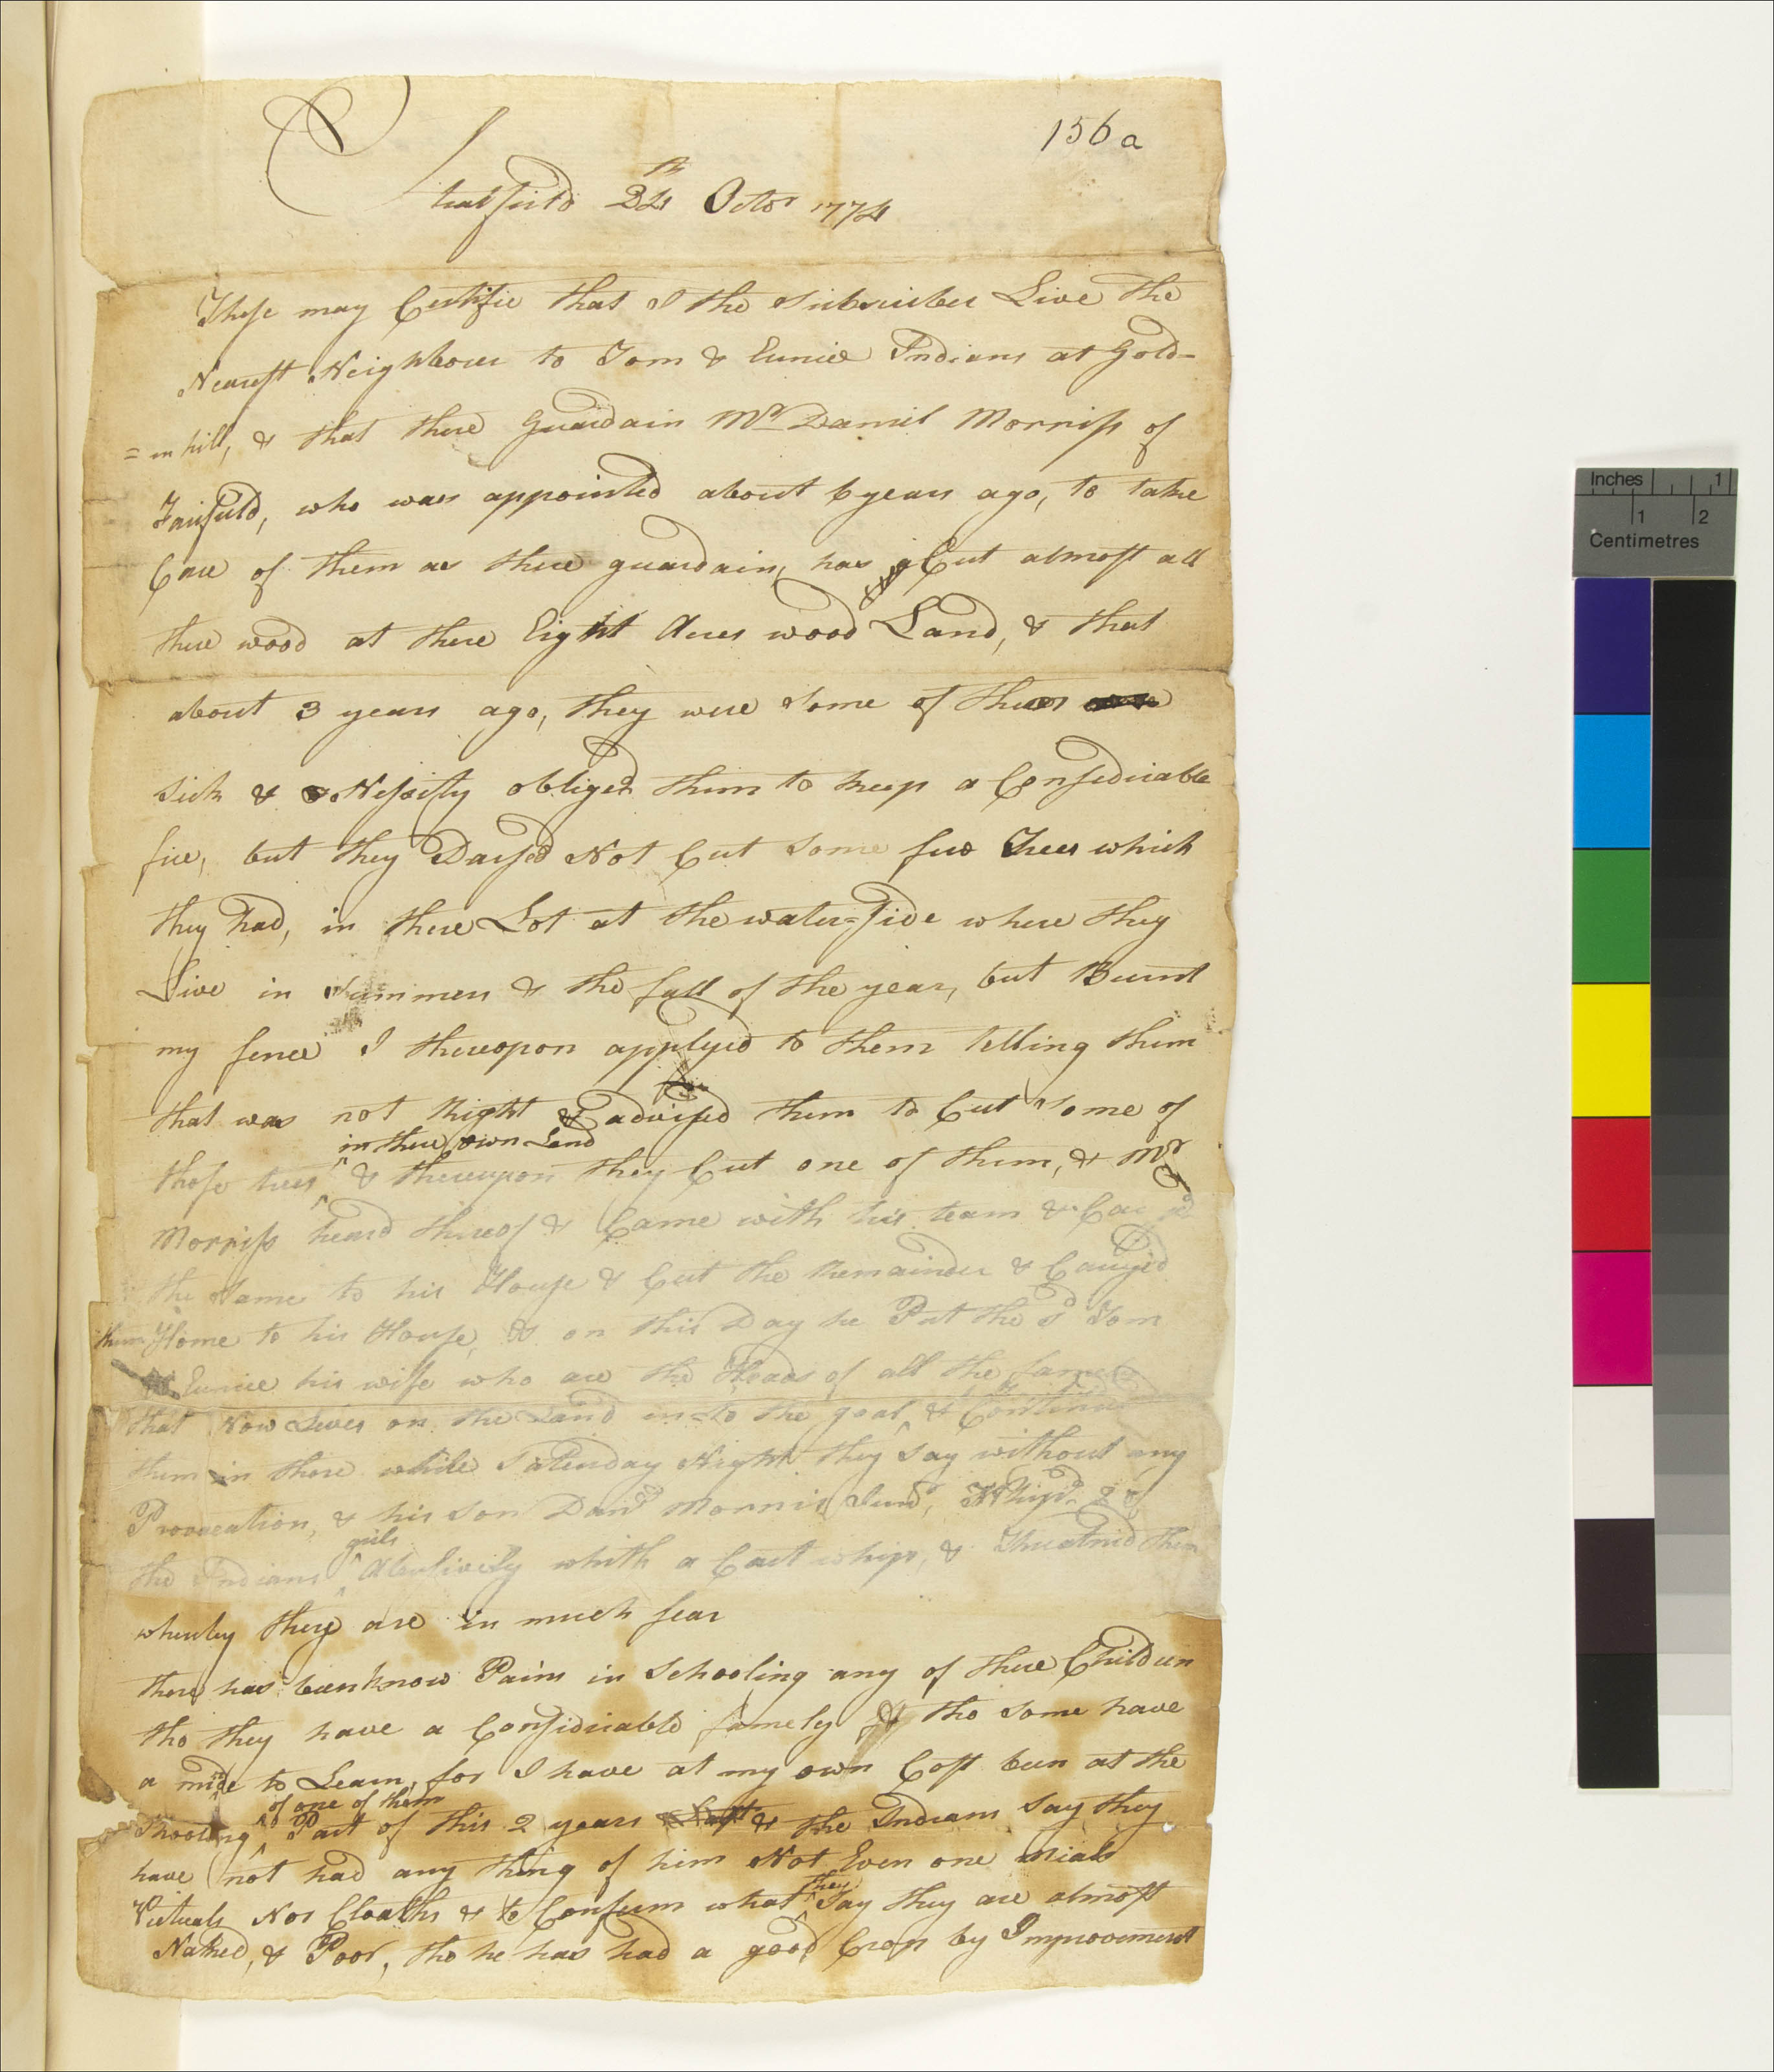 156a
Stratfield 24th Octor 1774
These may Certifie that I the Subscriber Live the
Nearest Neighbour to Tom & Eunice Indians at Gold-
=en hill, & that there Guardain Mr Daniel Morriss of
Fairfield, who was appointed about 6 years ago, to take
Care of them as there guardain, has Cut almost all
there wood at there Eight Acres wood Land, & that
about 3 years ago, they were some of them
sick & Nessisity obliged them to keep a Consederable
fire, but they Darsed Not Cut some few Trees which
they had, in there Lot at the water=side where they
Live in Summer & the fall of the year, but Burnt
my fence I thereopon applyed to them telling them
that was not Right & advised them to Cut some of
in there own Land
those trees ^ & thereupon they Cut one of them, & Mr
Morriss heard thereof & Came with his team &
the same to his House & Cut the Remainder & Carryed
them Home to his House, & on this Day he Put the sd Tom
& Eunice his wife who are the Heads of all the
that Now Lives on the Land in=to the goal, &
them in there while Saterday Night they say without any
Provocation, & his son Danll Morris Junr, Whipd 2 of
girls
the Indians ^ Abusively whith a Cart whip, & Threatned them
whereby they are in much fear
there has been know Pains in Schooling any of there Children
tho they have a Considerable famely & tho some have
a minde to Learn, for I have at my own Cost been at the
of one of them
Shooling ^ Part of this 2 years & the Indians say they
have not had any thing of him Not Even one meals
they
Victuals Nor Cloaths & to Confirm what ^ Say they are almost
Naked, & Poor, tho he has had a good Crop by Improvement
Inches 1
1 2
Centimetres